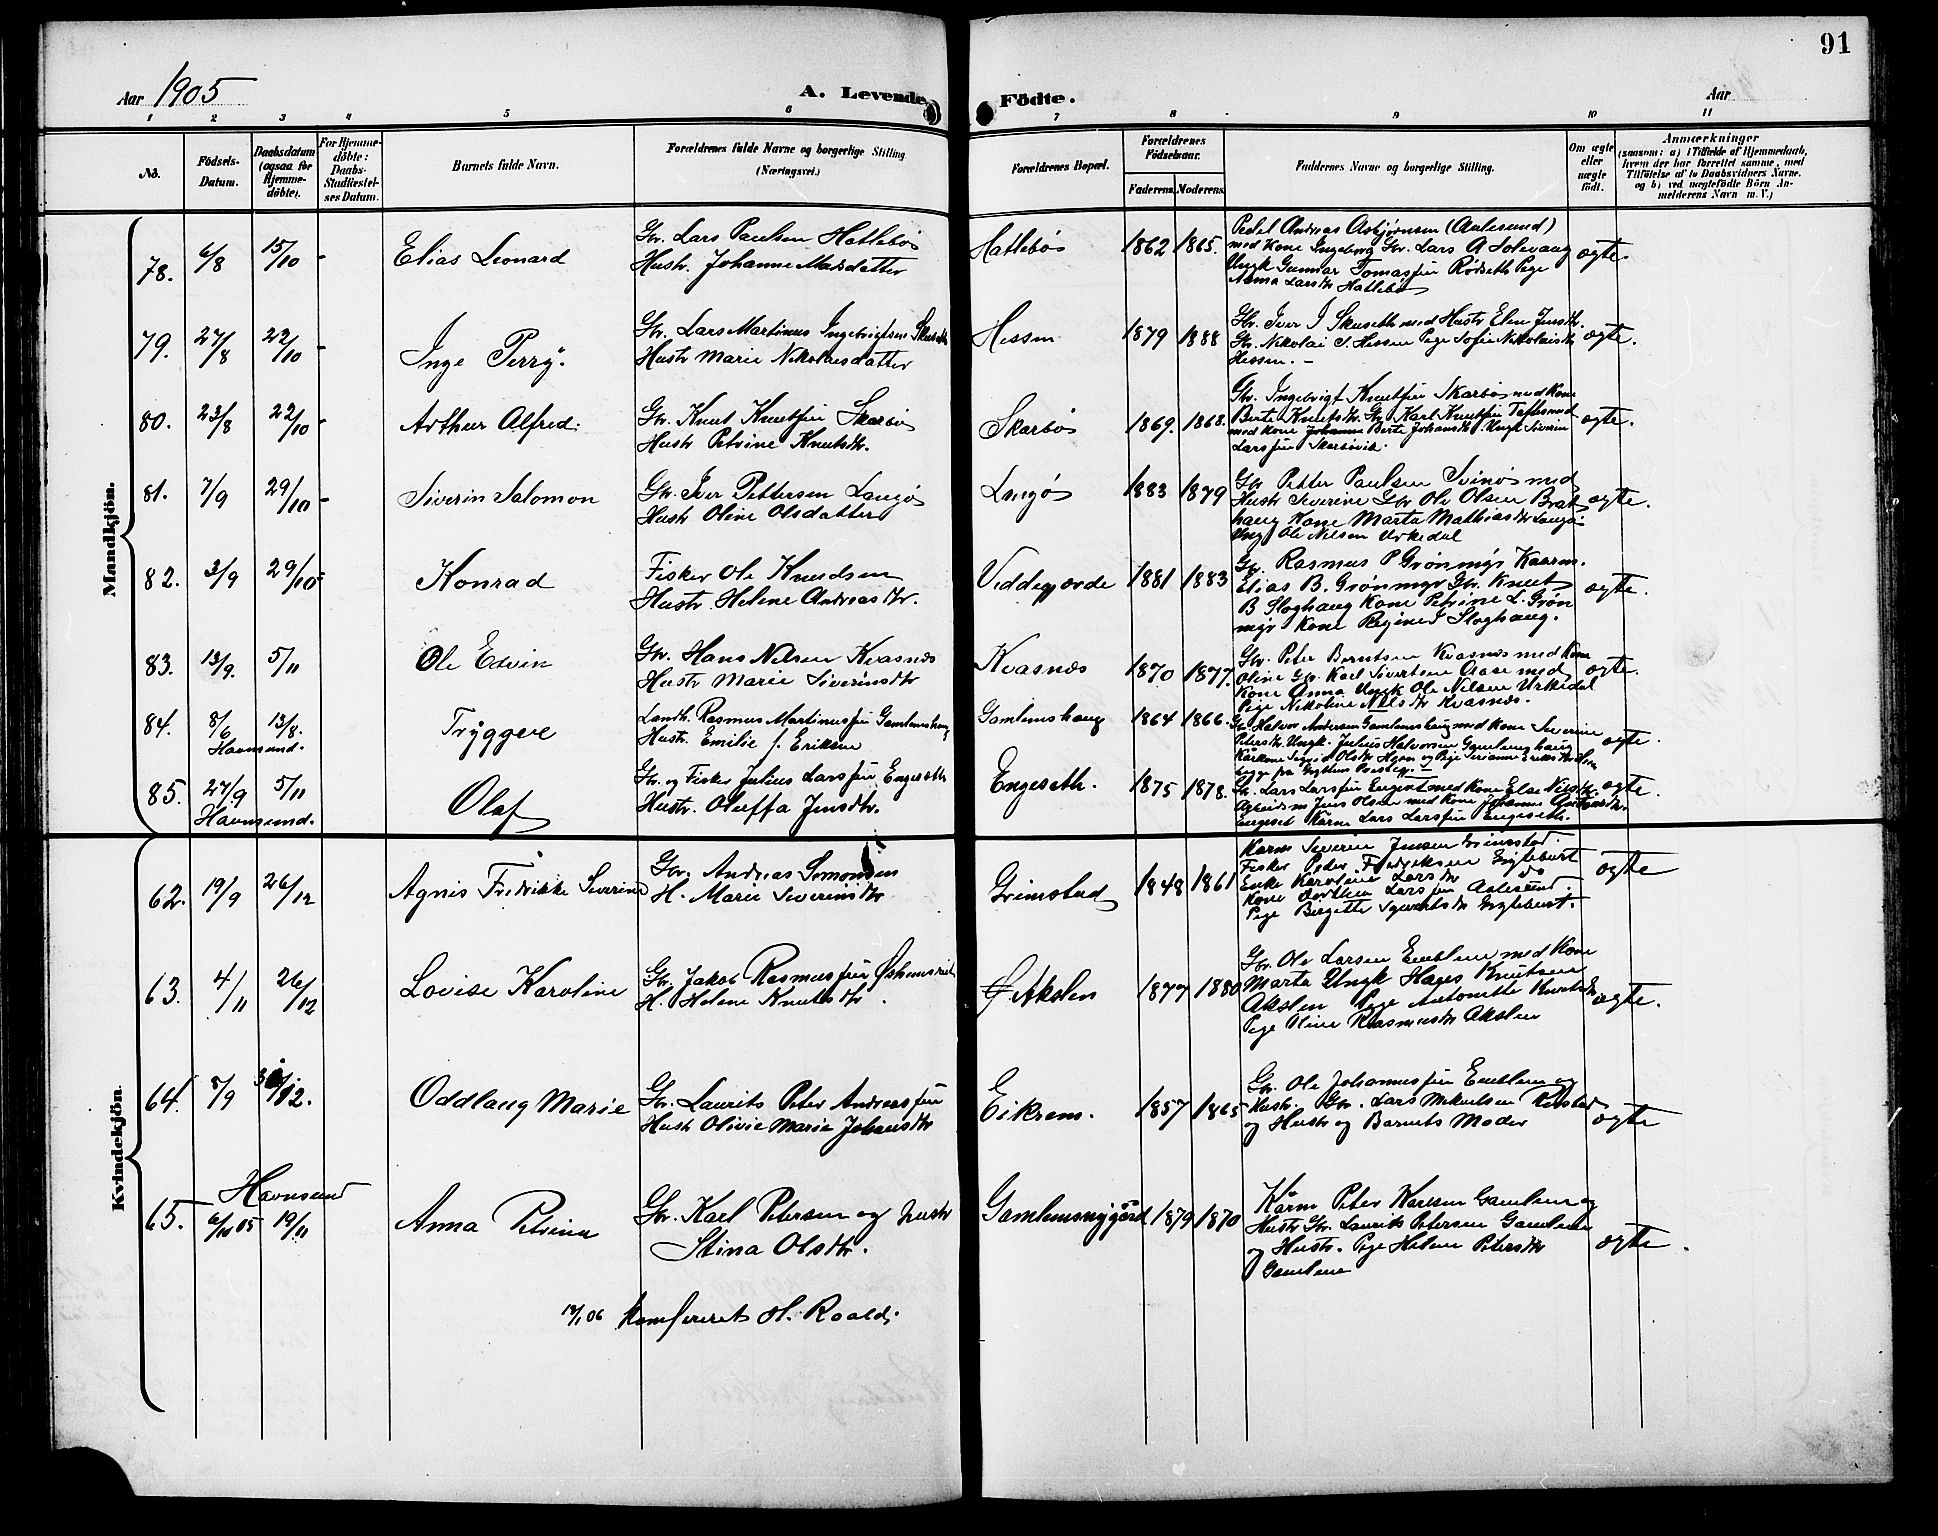 91
Aar 1905
A. Levende Födte.
Aar
1 2 3 4 5 6 7 8 9 10 11
No.
Födsels-Datum.
Daabsdatum (ogsaa for Hjemme-döbte).
For Hjemme-döbte: Daabs-Stadfæstel-ses Datum.
Barnets fulde Navn.
Forældrenes fulde Navne og borgerlige Stilling (Næringsvei.)
Forældrenes Bopæl.
Forældrenes Födselsaar.
Faderens. Moderens.
Faddernes Navne og borgerlige Stilling.
Om ægte eller uægte födt.
Anmærkninger
(saasom: a) i Tilfælde af Hjemmedaab, hvem der har forrettet samme, med Tilföielse af to Daabsvidners Navne. og b) ved uægtefödte Börn An-melderens Navn m. V.)
Mandkjön.
78. 6/8 15/10 - Elias Leonard
Gbr. Lars Paulsen Hatlebø
Hustr. Johanne Larsdatter
Hatlebø 1862 1865.
Pedel Andreas Asbjørnsen (Aalesund)
med Kone Ingeborg Gbr. Lars A Solevaag
Ungk Gunnar Tomassen Rødseth Pige
Anna Larsdtr Hatlebø
ægte.
79. 27/8 22/10 - Inge Perry.
Gbr. Lars Martinus Ingebrigtsen Skuseth
Hustr Marie Nikolaisdatter
Hessen 1879 1888
Gbr. Iver I Skuseth med Hustr Elen Jensdtr.
Gbr. Nikolai S. Hessen Pige Sofie Nikolaisdtr
Hessen. -
ægte.
80. 23/8 22/10 - Arthur Alfred.
Gbr. Knut Knutsen Skarbø
Hustr. Petrine Knutsdtr.
Skarbø 1869. 1868.
Gbr. Ingebrigt Knutsen Skarbø med Kone
Berte Knutsdtr. Gbr Karl Knutsen
med Kone Johanne Berte Johansdtr. Ungk Severin
Larssen Skarbøvik.
ægte.
81. 7/9 29/10 - Siverin Salomon
Gbr. Iver Pettersen Langø
Hustr Oline Olsdatter
Langø 1883 1879
Gbr Petter Paulsen Svinø med
Hustr Severine Gbr Ole Olsen Brat
haug Kone Marta Mathiasdtr Langø
Ung Ole Nilsen Urkedal
ægte.
82. 3/9 29/10 - Konrad
Fisker Ole Knudsen
Hustr. Helene Andreasdtr.
Viddegjærde 1881 1883
Gbr. Rasmus P Grønmyr Kaarm.
Elias B. Grønmyr Gbr. Knut
B Sloghaug Kone Petrine L. Grøn
myr Kone Regine I Sloghaug.
ægte.
83. 13/9. 5/11 Ole Edvin
Gbr. Hans Nilsen Kvasnæs
Hustr Marie Siverinsdtr
Kvasnæs 1870 1877.
Gbr. Peter Berntsen Kvasnæs med Kone
Oline Gbr. Karl Sivertsen Aase med
Kone Anna Ungk Ole Nilsen Urkedal
Pige Nikoline Nilsdtr Kvasnæs.
ægte.
84. 8/6 13/8. Tryggve
Havnsund.
Landh. Rasmus Martinussen Gamlemshaug
Hustr. Emilie f. Eriksen
Gamlemshaug 1864 1866.
Gbr Halvor Andersen Gamlemshaug med Kone Severine
Petersdtr. Ungk. Julius Halvorsen Gamlemshaug
ægte.
85. 27/9 5/11 Olaf
Havnsund.
Gbr. og Fisker Julius Larssen Engeseth
Hustr. Oluffa Jensdtr.
Engeseth. 1875 1878.
Gbr. Lars Larssen Engeset med Kone Else Nilsdtr.
Arbeidsm Jens Olsen med Kone Johanne
Engeset Kårm Lars Larssen Engeseth.
ægte.
Kvindekjön.
62. 19/9 26/12 Agnis Fredrikke Severine
Gbr. Andreas Simonsen
H. Marie Severinsdtr
Grimstad 1848 1861
Karm Severin Jensen Grimstad
Fisker Peder Fredriksen
Enke Karoline Larsdtr do
Kone Dorthea Larssen Aalesund.
Pige Bergitte Syvertsdtr
ægte
63. 4/11 26/12 Lovise Karoline
Gbr. Jakob Rasmussen
H. Helene Knutsdtr.
Ø Akslen 1877 1880
Gbr. Ole Larsen Emblem med Kone
Marta Ungk Hages Knutsen
Akslen Pige Antonette Knutsdtr
Pige Oline Rasmusdtr Akslen
ægte.
64. 5/9 3/12. Oddlaug Marie
Gbr. Laurits Peter Andreassen
Hustr Olivie Marie Johansdtr
Eikrem. 1857 1865
Gbr. Ole Johannessen Emblem og
Hustr. Gbr. Lars Mikelsen
og Hustr og Barnets Moder
ægte
65. Havnsund
6/10 05 19/11 Anna Petrina
Gbr. Karl Petersen og Hustr
Stina Olsdtr.
Gamlemsnygård 1879 1870
Kårm Peter Karlsen Gamlem og
Hustr Gbr. Laurits Petersen Gamlem
og Hustr. Pige Helene Petersdtr
Gamlem
ægte.
12/1 06 Konfereret H. Roald.